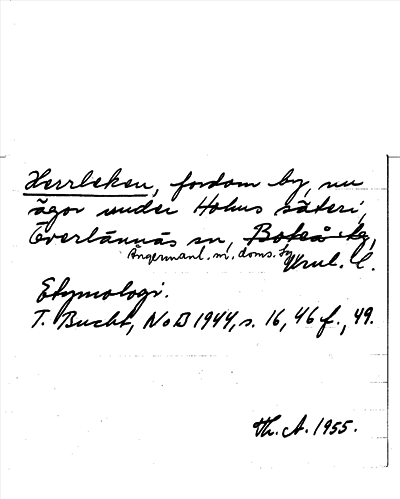 Herrleken, fordom by, nu
ägor under Holms säteri,
Överlännäs sn, Boteå tg,
Ångermanl. m. doms. sg
Vrnl. l.
Etymologi.
T. Bucht, NoB 1944, s. 16, 46 f., 49.
Th. A. 1955.